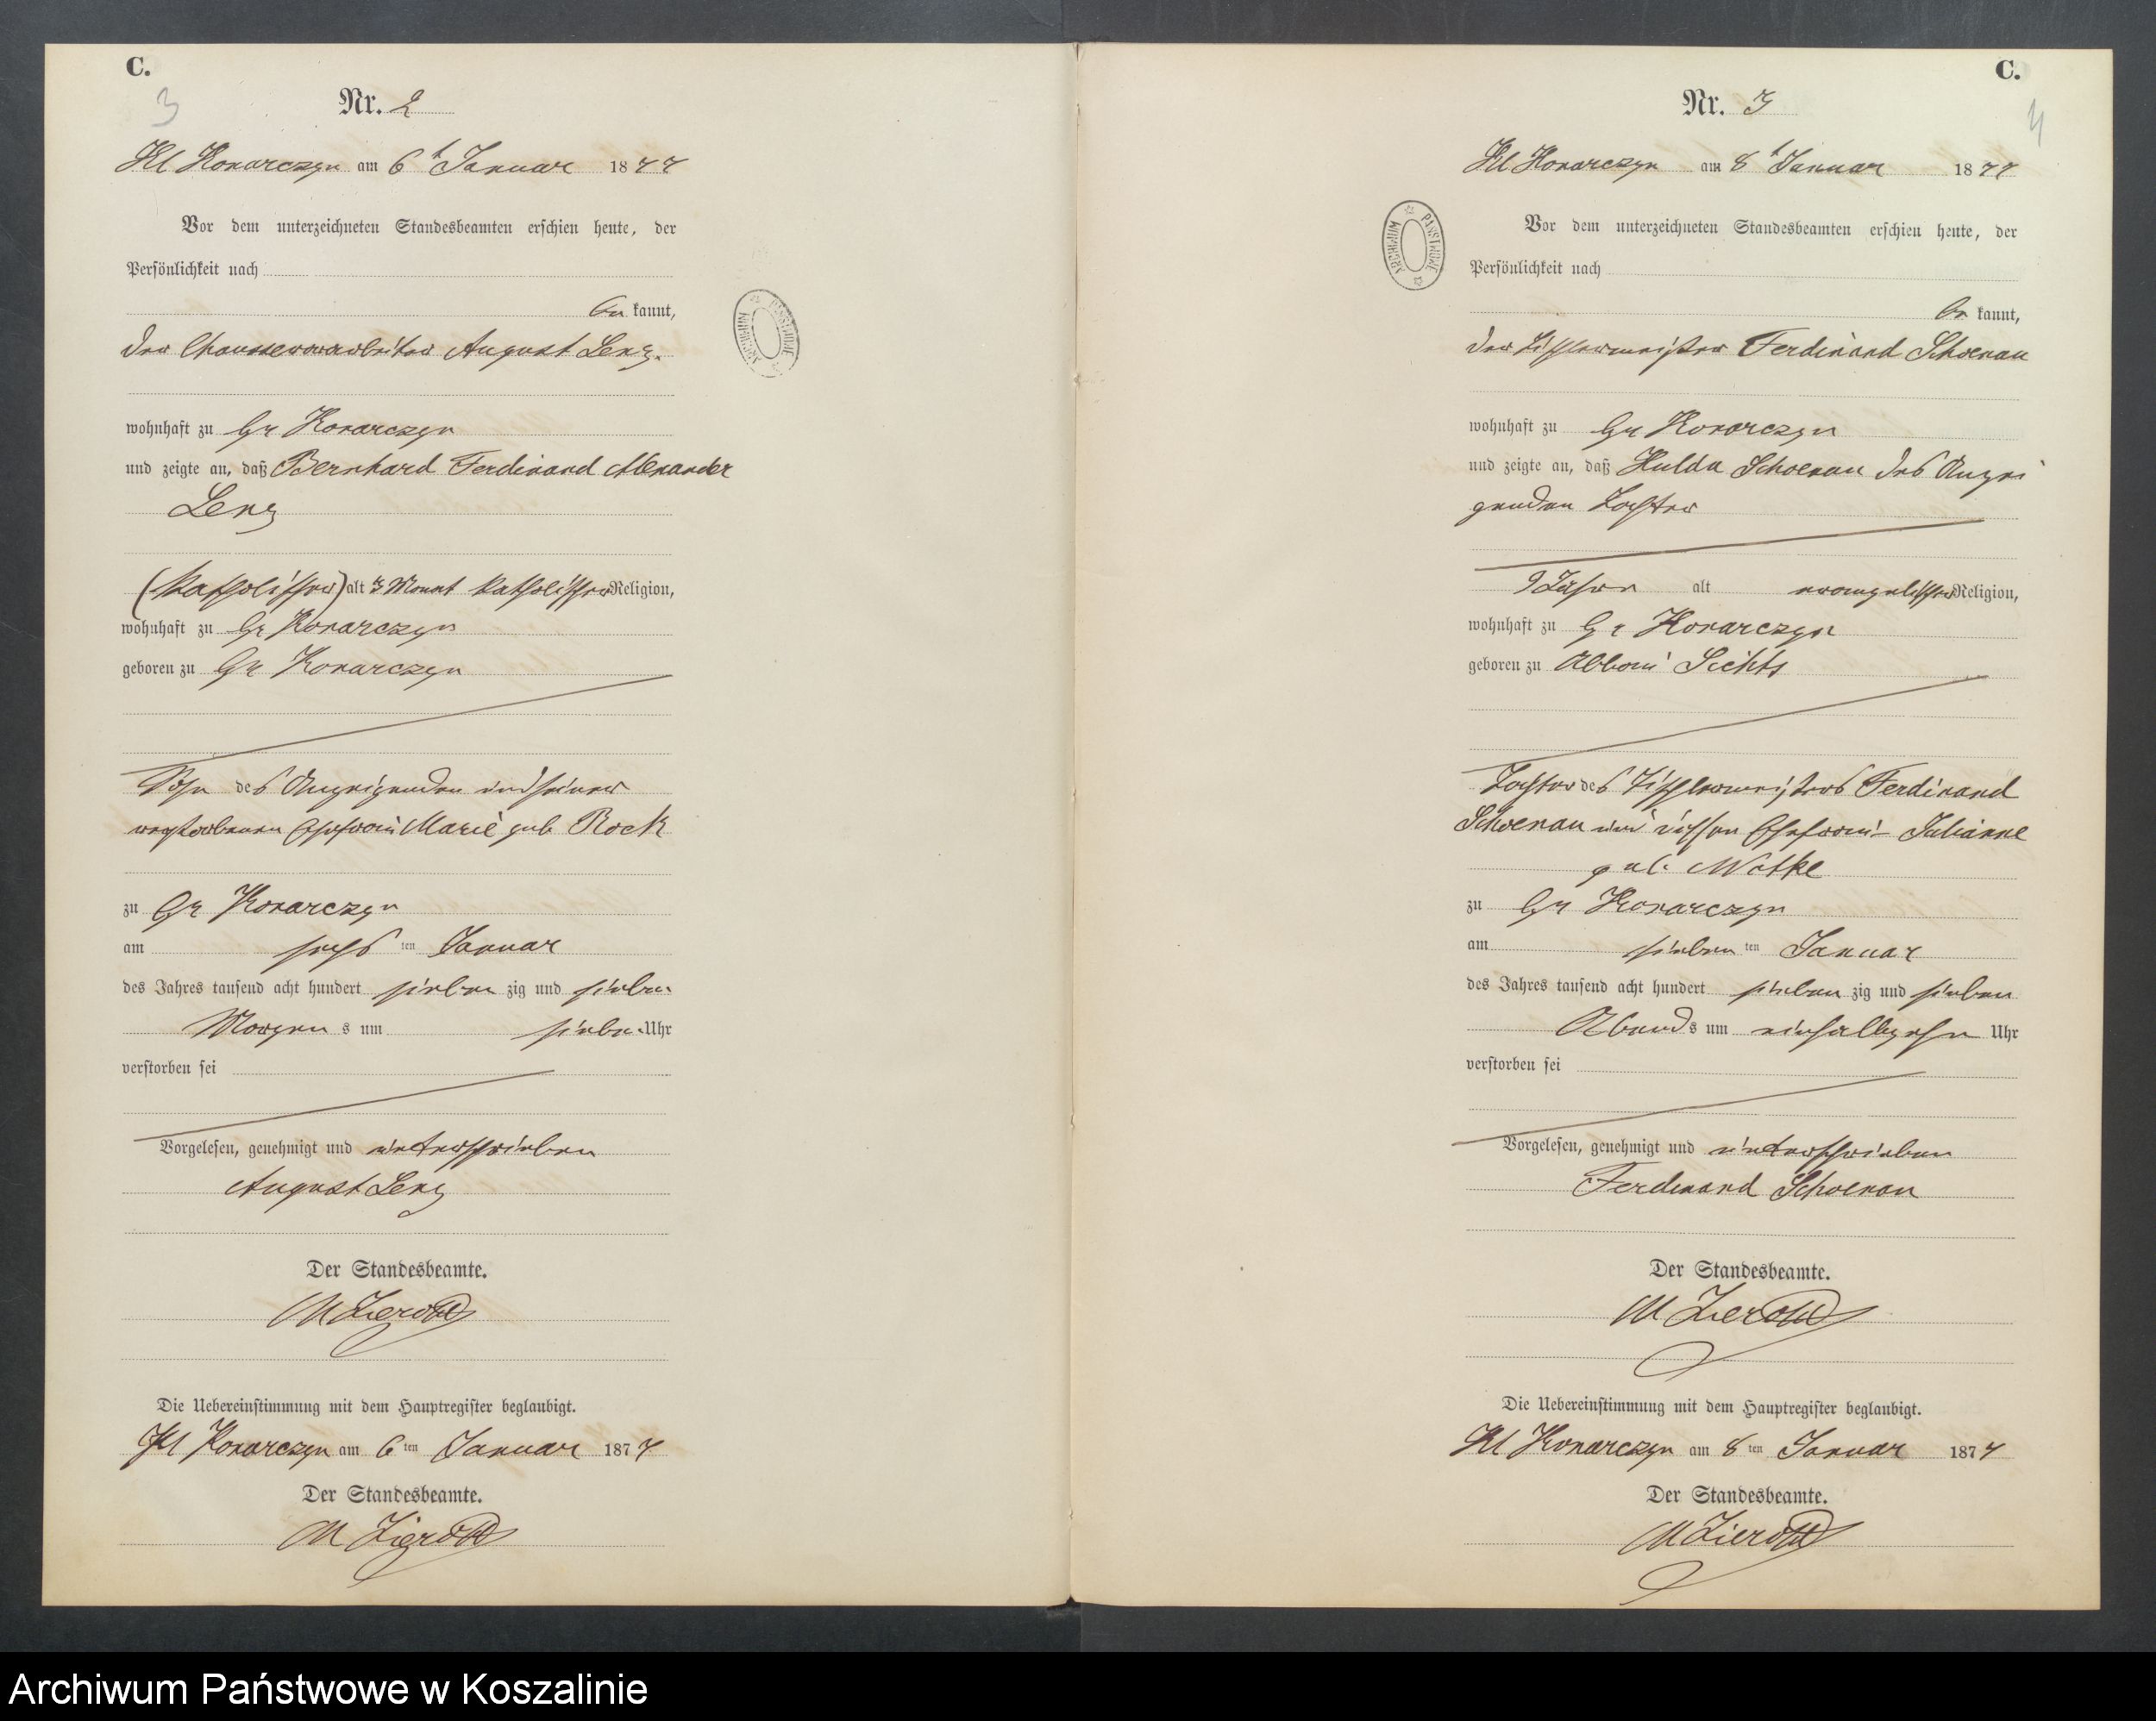 C.
3
Nr. 2
Kl Konarczyn am 6t Januar 1877
Vor dem unterzeichneten Standesbeamten erschien heute, der
Persönlichkeit nach
be kannt,
der Chausseearbeiter August Lenz.
wohnhaft zu Gr Konarczyn
und zeigte an, daß Bernhard Ferdinand Alexander
Lenz
(katholischer) alt 3 Monat katholischer Religion,
wohnhaft zu Gr Konarczyn
geboren zu Gr Konarczyn
Sohn des Anzeigenden und seiner
verstorbenen Ehefrau Marie geb Rock
zu Gr Konarczyn
am sechs ten Januar
des Jahres tausend acht hundert sieben zig und sieben
Morgen s um sieben Uhr
verstorben sei
Vorgelesen, genehmigt und unterschrieben
August Lenz
Der Standesbeamte.
M Zieroth
Die Uebereinstimmung mit dem Hauptregister beglaubigt.
Kl Konarczyn am 6 ten Januar 1877
Der Standesbeamte.
M Zieroth
ARCHIWUM PAŃSTWOWE
C.
4
Nr. 3
Kl Konarczyn am 8t Januar 1877
ARCHIWUM PAŃSTWOWE
Vor dem unterzeichneten Standesbeamten erschien heute, der
Persönlichkeit nach
be kannt,
der Tischlermeister Ferdinand Schoenau
wohnhaft zu Gr Konarczyn
und zeigte an, daß Hulda Schoenau des Anzei
genden Tochter
9 Jahre alt evangelischer Religion,
wohnhaft zu Gr Konarczyn
geboren zu Abbau Sichts
Tochter des Tischlermeisters Ferdinand
Schoenau und dessen Ehefrau Julianne
geb. Witke
zu Gr Konarczyn
am sieben ten Januar
des Jahres tausend acht hundert sieben zig und sieben
Abend s um einhalbzehn Uhr
verstorben sei
Vorgelesen, genehmigt und unterschrieben
Ferdinand Schoenau
Der Standesbeamte.
M Zieroth
Die Uebereinstimmung mit dem Hauptregister beglaubigt.
Kl Konarczyn am 8 ten Januar 1877
Der Standesbeamte.
M Zieroth
Archiwum Państwowe w Koszalinie